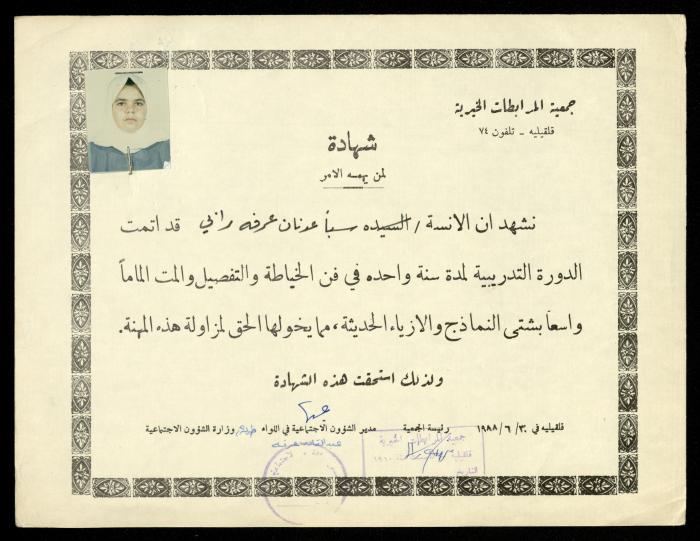 جمعية المرابطات الخيرية
قلقيليه - تلفون ٧٤
شهادة
لمن يهمه الامر
نشهد ان الانسة / السيده سبأ عدنان عرفه راني قد اتمت
الدورة التدريبية لمدة سنة واحده في فن الخياطة والتفصيل والمت الماماً
واسعاً بشتى النماذج والازياء الحديثة، مما يخولها الحق لمزاولة هذه المهنة.
ولذلك استحقت هذه الشهادة
قلقيليه في ٣٠ / ٦ / ١٩٨٨ رئيسة الجمعية مدير الشؤون الاجتماعية في اللواء وزارة الشؤون الاجتماعية
جمعية المرابطات الخيرية
قلقيلية
التاريخ